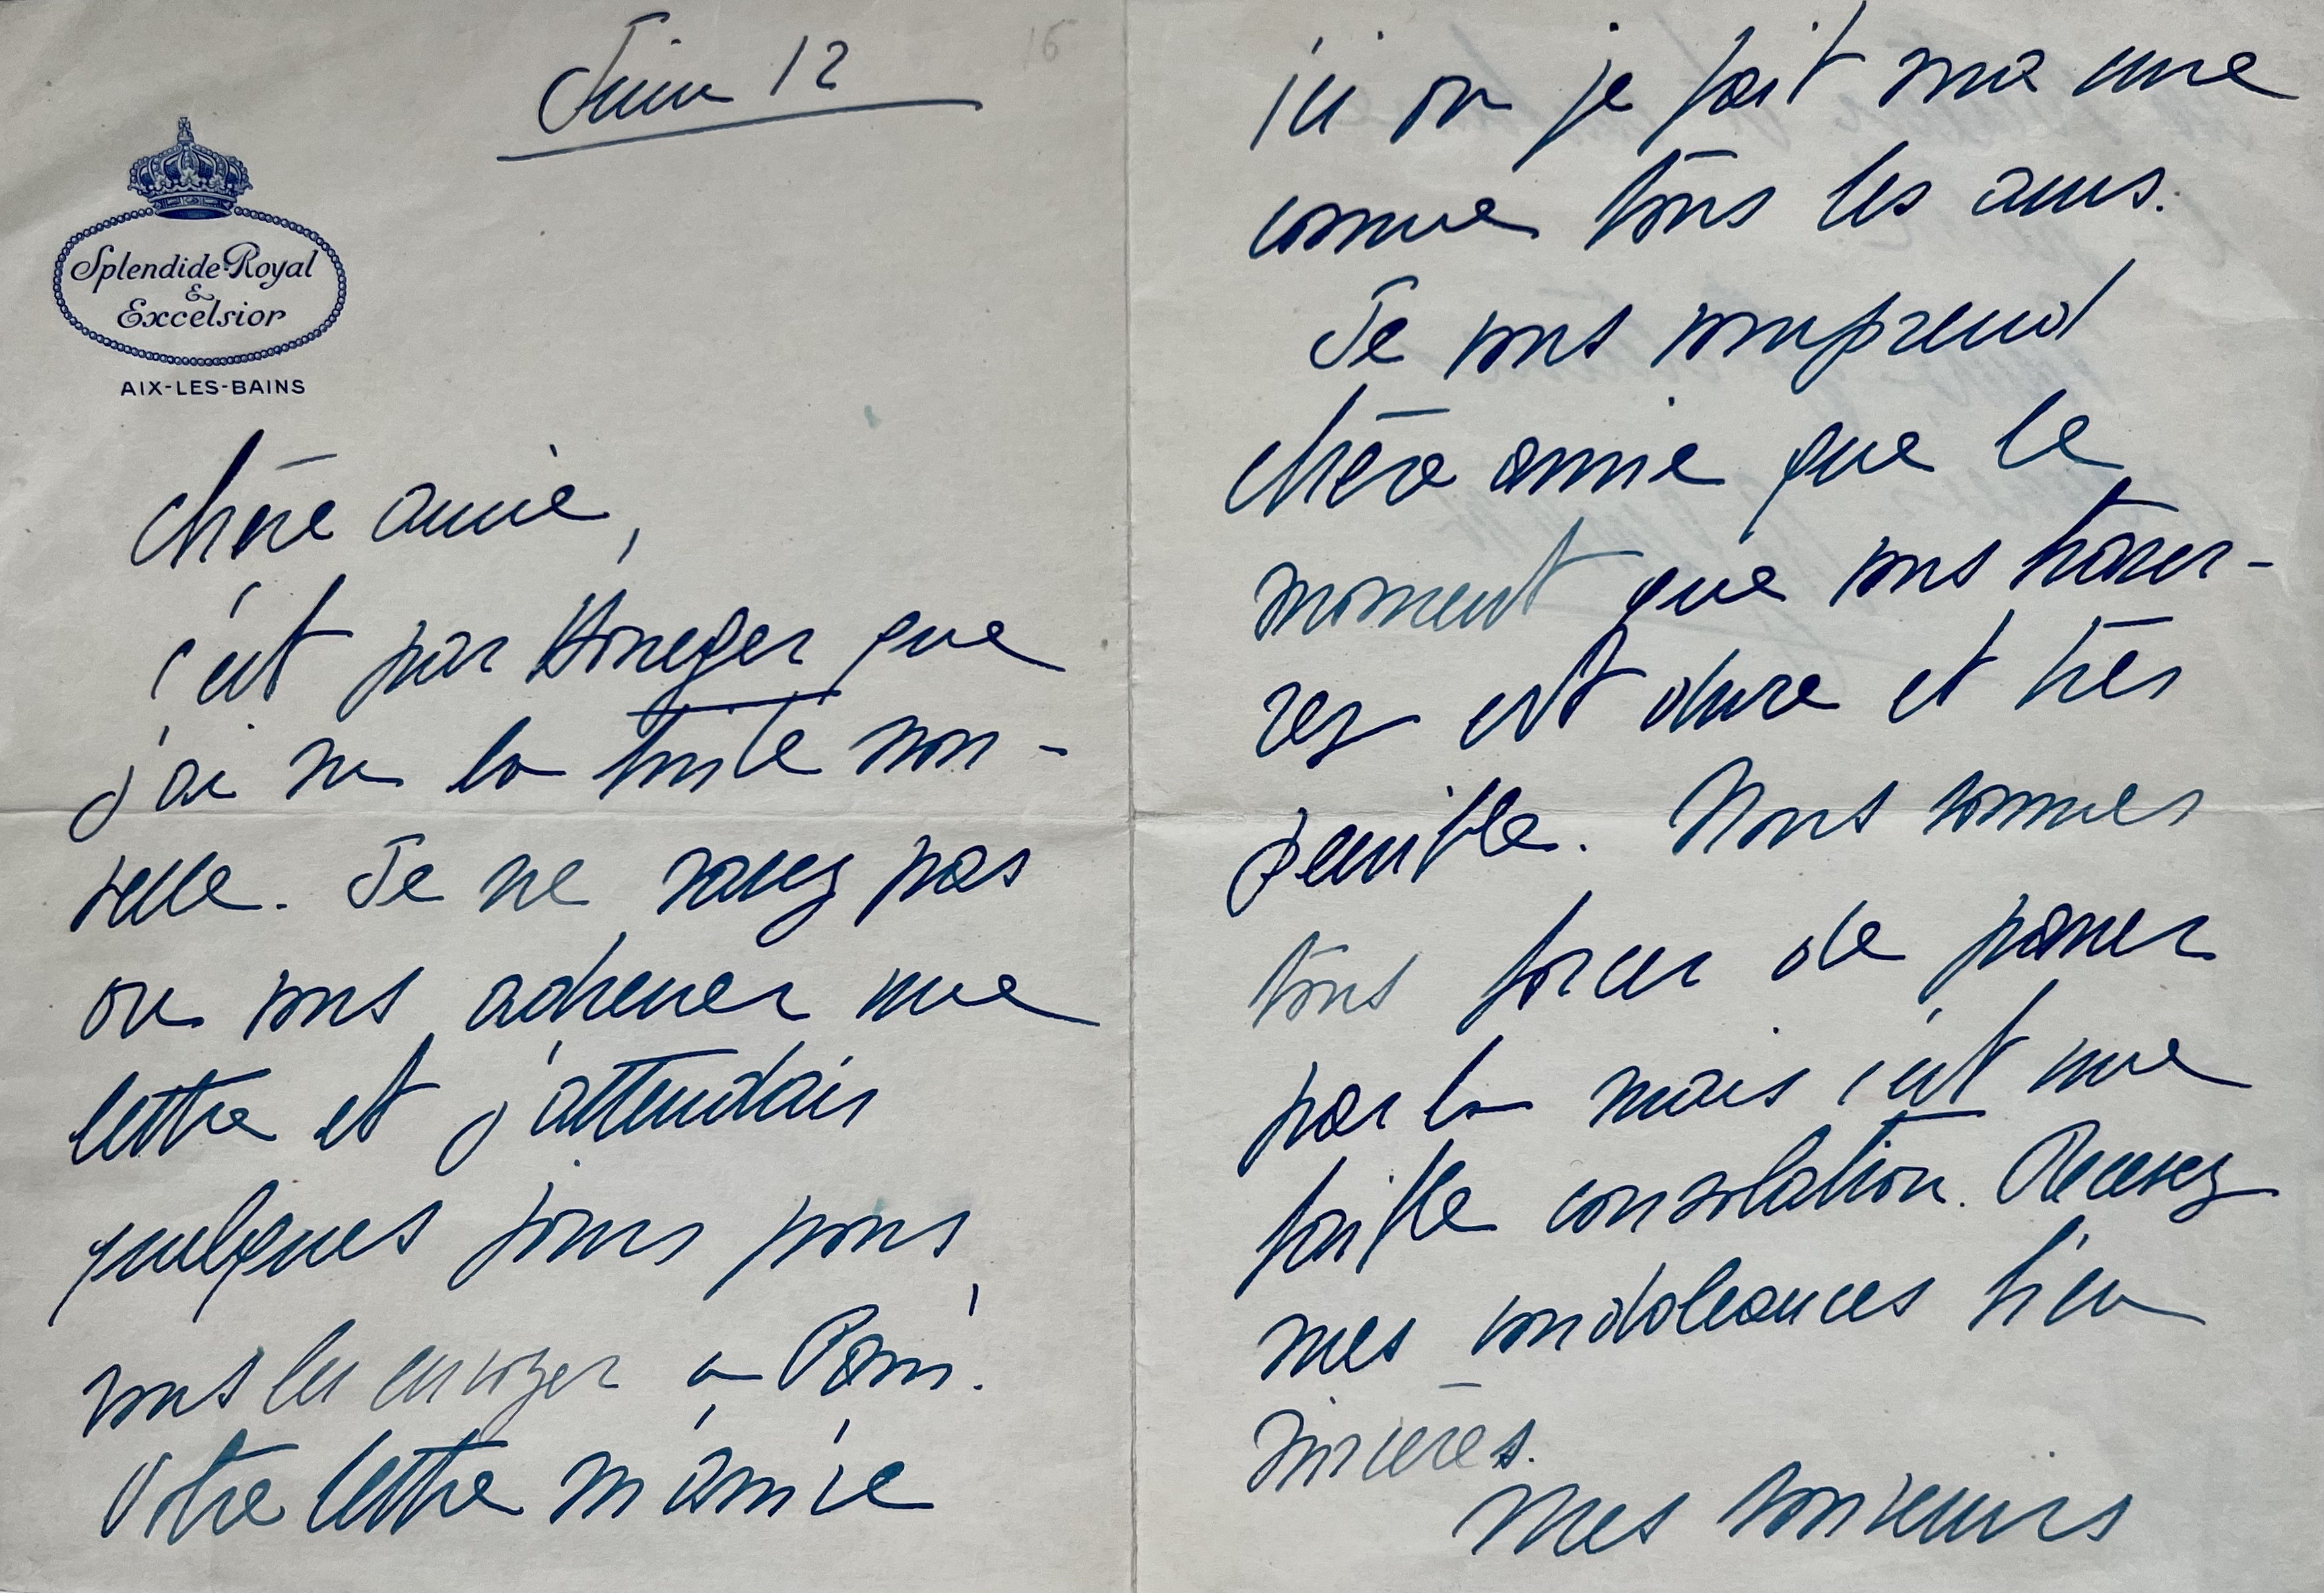 Juin 12
16
Splendide-Royal
&
Excelsior
AIX-LES-BAINS
Chère amie,
c'est par Honeger que
j'ai su la triste nou-
velle. Je ne savez pas
ou vous adresser une
lettre et j'attendais
quelques jours pour
vous les envoyer a Paris.
Votre lettre m'arrive
ici ou je fait ma cure
comme tous les ans.
Je vous comprend
chère amie que le
moment que vous traver-
sez est dure et très
penible. Nous sommes
tous forcer de passer
par la mais c'est une
faible consolation. Recevez
mes condoleances bien
sincères.
Mes souvenirs